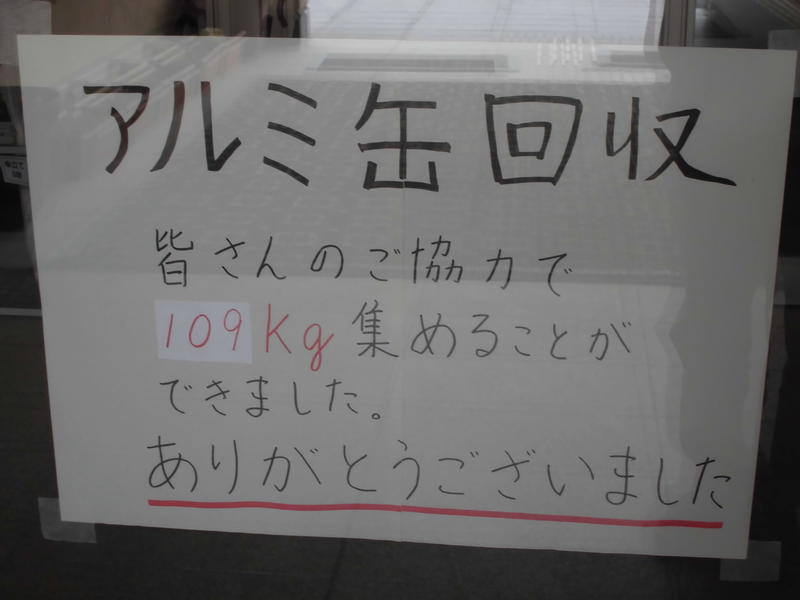 アルミ缶回収
皆さんのご協力で
109Kg集めることが
できました。
ありがとうございました